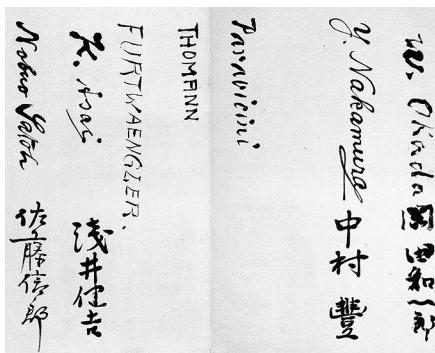 W. Okada 岡田和一郎
Y. Nakamura 中村豐
Paravicini
THOMANN
FURTWAENGLER.
K. Asai 淺井健吉
Nobuo Satoh 佐藤信郎